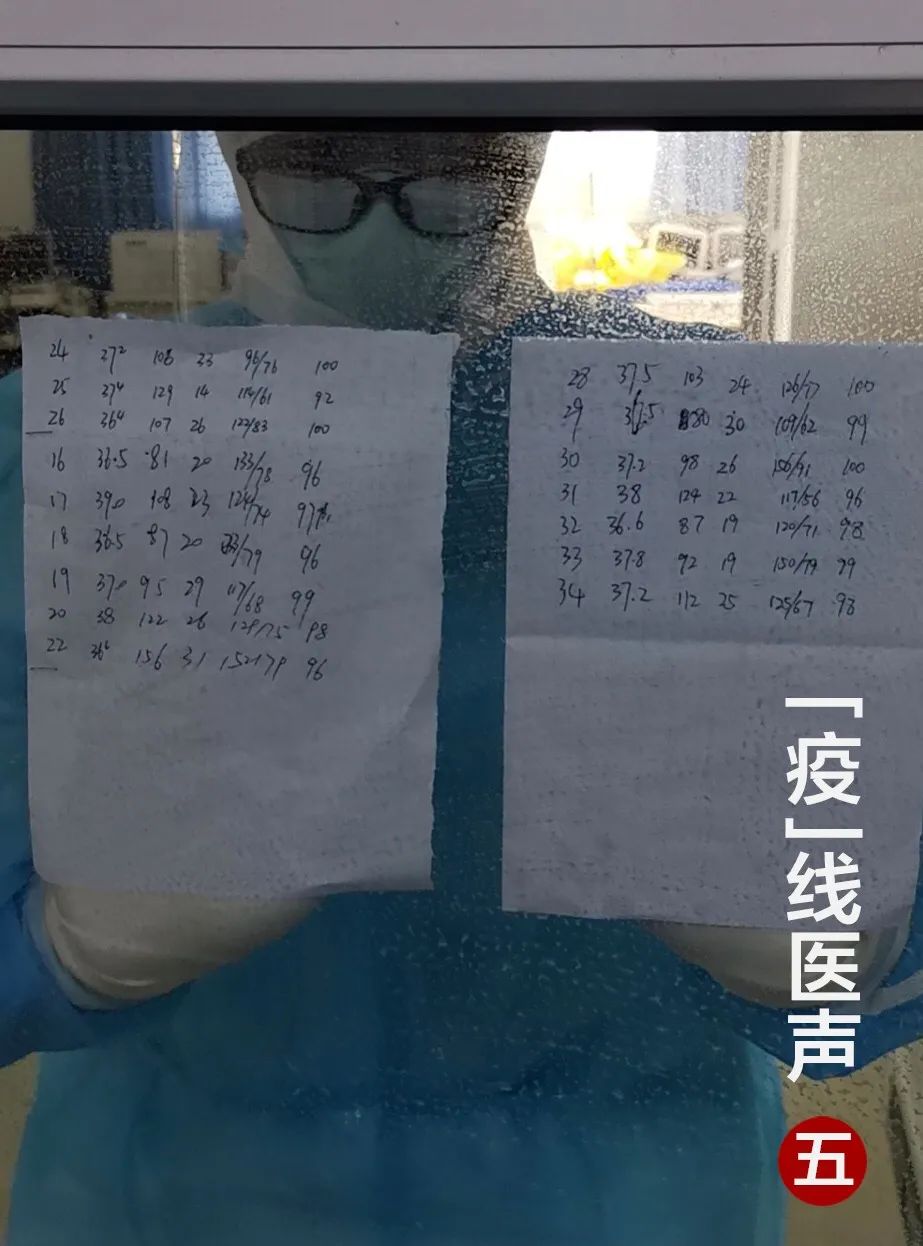 24 37² 108 33 96/76 100
25 37⁴ 129 14 114/61 92
26 36⁴ 107 26 122/83 100
16 36.5 81 20 133/78 96
17 39.0 108 23 124/74 97
18 36.5 87 20 /79 96
19 37.0 95 29 117/68 99
20 38 122 26 129/75 98
22 36⁶ 156 31 152/79 96
28 37.5 103 24 126/77 100
29 80 30 109/62 99
30 37.2 98 26 156/91 100
31 38 124 22 117/56 96
32 36.6 87 19 120/71 98
33 37.8 92 19 150/79 99
34 37.2 112 25 125/67 98
「疫」线医声
五